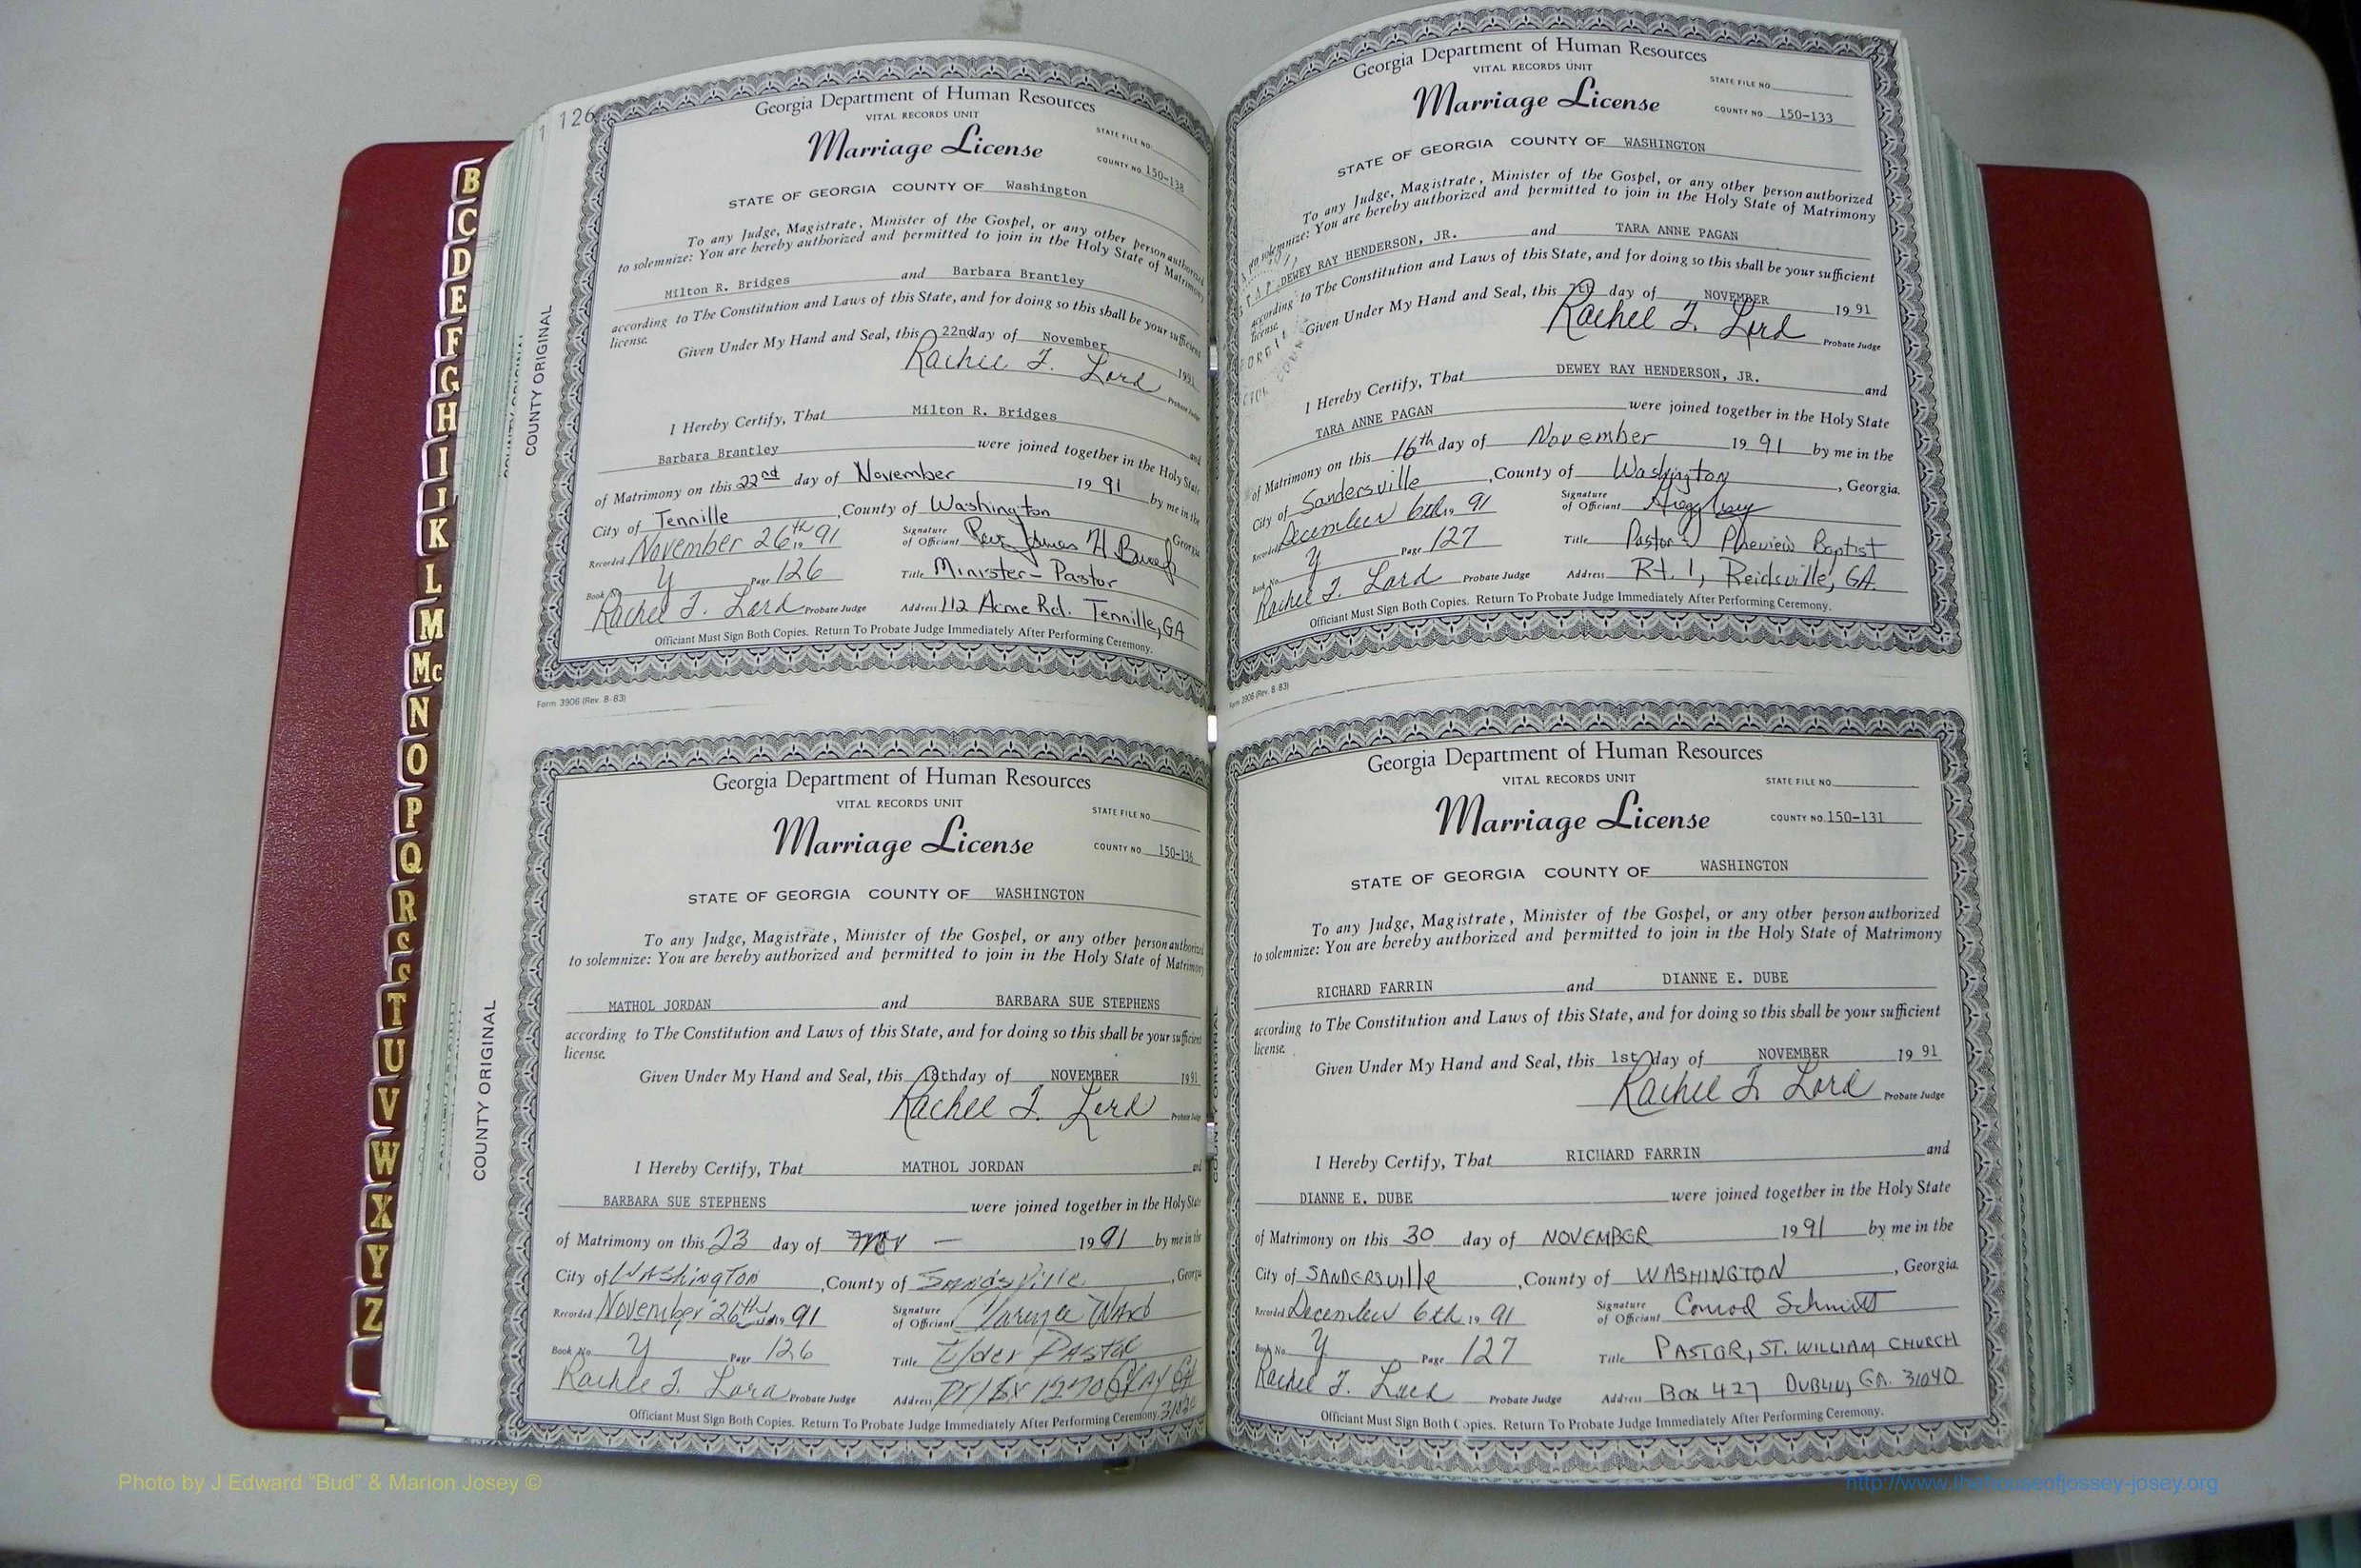 126
Georgia Department of Human Resources
VITAL RECORDS UNIT
STATE FILE NO.
Marriage License
COUNTY NO. 150-138
STATE OF GEORGIA COUNTY OF Washington
To any Judge, Magistrate, Minister of the Gospel, or any other person authorized
to solemnize: You are hereby authorized and permitted to join in the Holy State of Matrimony
Milton R. Bridges and Barbara Brantley
according to The Constitution and Laws of this State, and for doing so this shall be your sufficient
license.
Given Under My Hand and Seal, this 22nd day of November 1991
Rachel T. Lord Probate Judge
I Hereby Certify, That Milton R. Bridges and
Barbara Brantley were joined together in the Holy State
of Matrimony on this 22nd day of November 1991 by me in the
City of Tennille, County of Washington Georgia
Recorded November 26th 1991 Signature
of Officiant Rev. James H
Book No. Y Page 126 Title Minister - Pastor
Rachel T. Lord Probate Judge Address 112 Acme Rd. Tennille, GA
Officiant Must Sign Both Copies. Return To Probate Judge Immediately After Performing Ceremony.
Form 3906 (Rev. 8-83)
COUNTY ORIGINAL
Georgia Department of Human Resources
VITAL RECORDS UNIT
STATE FILE NO.
Marriage License
COUNTY NO. 150-136
STATE OF GEORGIA COUNTY OF WASHINGTON
To any Judge, Magistrate, Minister of the Gospel, or any other person authorized
to solemnize: You are hereby authorized and permitted to join in the Holy State of Matrimony
MATHOL JORDAN and BARBARA SUE STEPHENS
according to The Constitution and Laws of this State, and for doing so this shall be your sufficient
license.
Given Under My Hand and Seal, this 18th day of NOVEMBER 1991
Rachel T. Lord Probate Judge
I Hereby Certify, That MATHOL JORDAN and
BARBARA SUE STEPHENS were joined together in the Holy State
of Matrimony on this 23 day of Nov - 1991 by me in the
City of Washington, County of Sandsville, Georgia
Recorded November 26th 1991 Signature
of Officiant Ward
Book No. Y Page 126 Title Elder Pastor
Rachel T. Lord Probate Judge Address
Officiant Must Sign Both Copies. Return To Probate Judge Immediately After Performing Ceremony.
COUNTY ORIGINAL
Georgia Department of Human Resources
VITAL RECORDS UNIT
STATE FILE NO.
Marriage License
COUNTY NO. 150-133
STATE OF GEORGIA COUNTY OF WASHINGTON
To any Judge, Magistrate, Minister of the Gospel, or any other person authorized
to solemnize: You are hereby authorized and permitted to join in the Holy State of Matrimony
DEWEY RAY HENDERSON, JR. and TARA ANNE PAGAN
according to The Constitution and Laws of this State, and for doing so this shall be your sufficient
license.
Given Under My Hand and Seal, this 7th day of NOVEMBER 1991
Rachel T. Lord Probate Judge
I Hereby Certify, That DEWEY RAY HENDERSON, JR. and
TARA ANNE PAGAN were joined together in the Holy State
of Matrimony on this 16th day of November 1991 by me in the
City of Sandersville, County of Washington, Georgia.
Recorded December 6th 1991 Signature
of Officiant
Book No. Y Page 127 Title Pastor Baptist
Rachel T. Lord Probate Judge Address Rt. 1, Reidsville, GA.
Officiant Must Sign Both Copies. Return To Probate Judge Immediately After Performing Ceremony.
Form 3906 (Rev. 8-83)
Georgia Department of Human Resources
VITAL RECORDS UNIT
STATE FILE NO.
Marriage License
COUNTY NO. 150-131
STATE OF GEORGIA COUNTY OF WASHINGTON
To any Judge, Magistrate, Minister of the Gospel, or any other person authorized
to solemnize: You are hereby authorized and permitted to join in the Holy State of Matrimony
RICHARD FARRIN and DIANNE E. DUBE
according to The Constitution and Laws of this State, and for doing so this shall be your sufficient
license.
Given Under My Hand and Seal, this 1st day of NOVEMBER 1991
Rachel T. Lord Probate Judge
I Hereby Certify, That RICHARD FARRIN and
DIANNE E. DUBE were joined together in the Holy State
of Matrimony on this 30 day of NOVEMBER 1991 by me in the
City of SANDERSVILLE, County of WASHINGTON, Georgia.
Recorded December 6th 1991 Signature
of Officiant Conrad Schmitt
Book No. Y Page 127 Title PASTOR, ST. WILLIAM CHURCH
Rachel T. Lord Probate Judge Address BOX 427 DUBLIN, GA. 31040
Officiant Must Sign Both Copies. Return To Probate Judge Immediately After Performing Ceremony.
COUNTY ORIGINAL
B
C
D
E
F
G
H
I
J
K
L
M
Mc
N
O
P
Q
R
S
S
T
U
V
W
X
Y
Z
Photo by J Edward "Bud" & Marion Josey ©
http://www.thehouseofjossey-josey.org